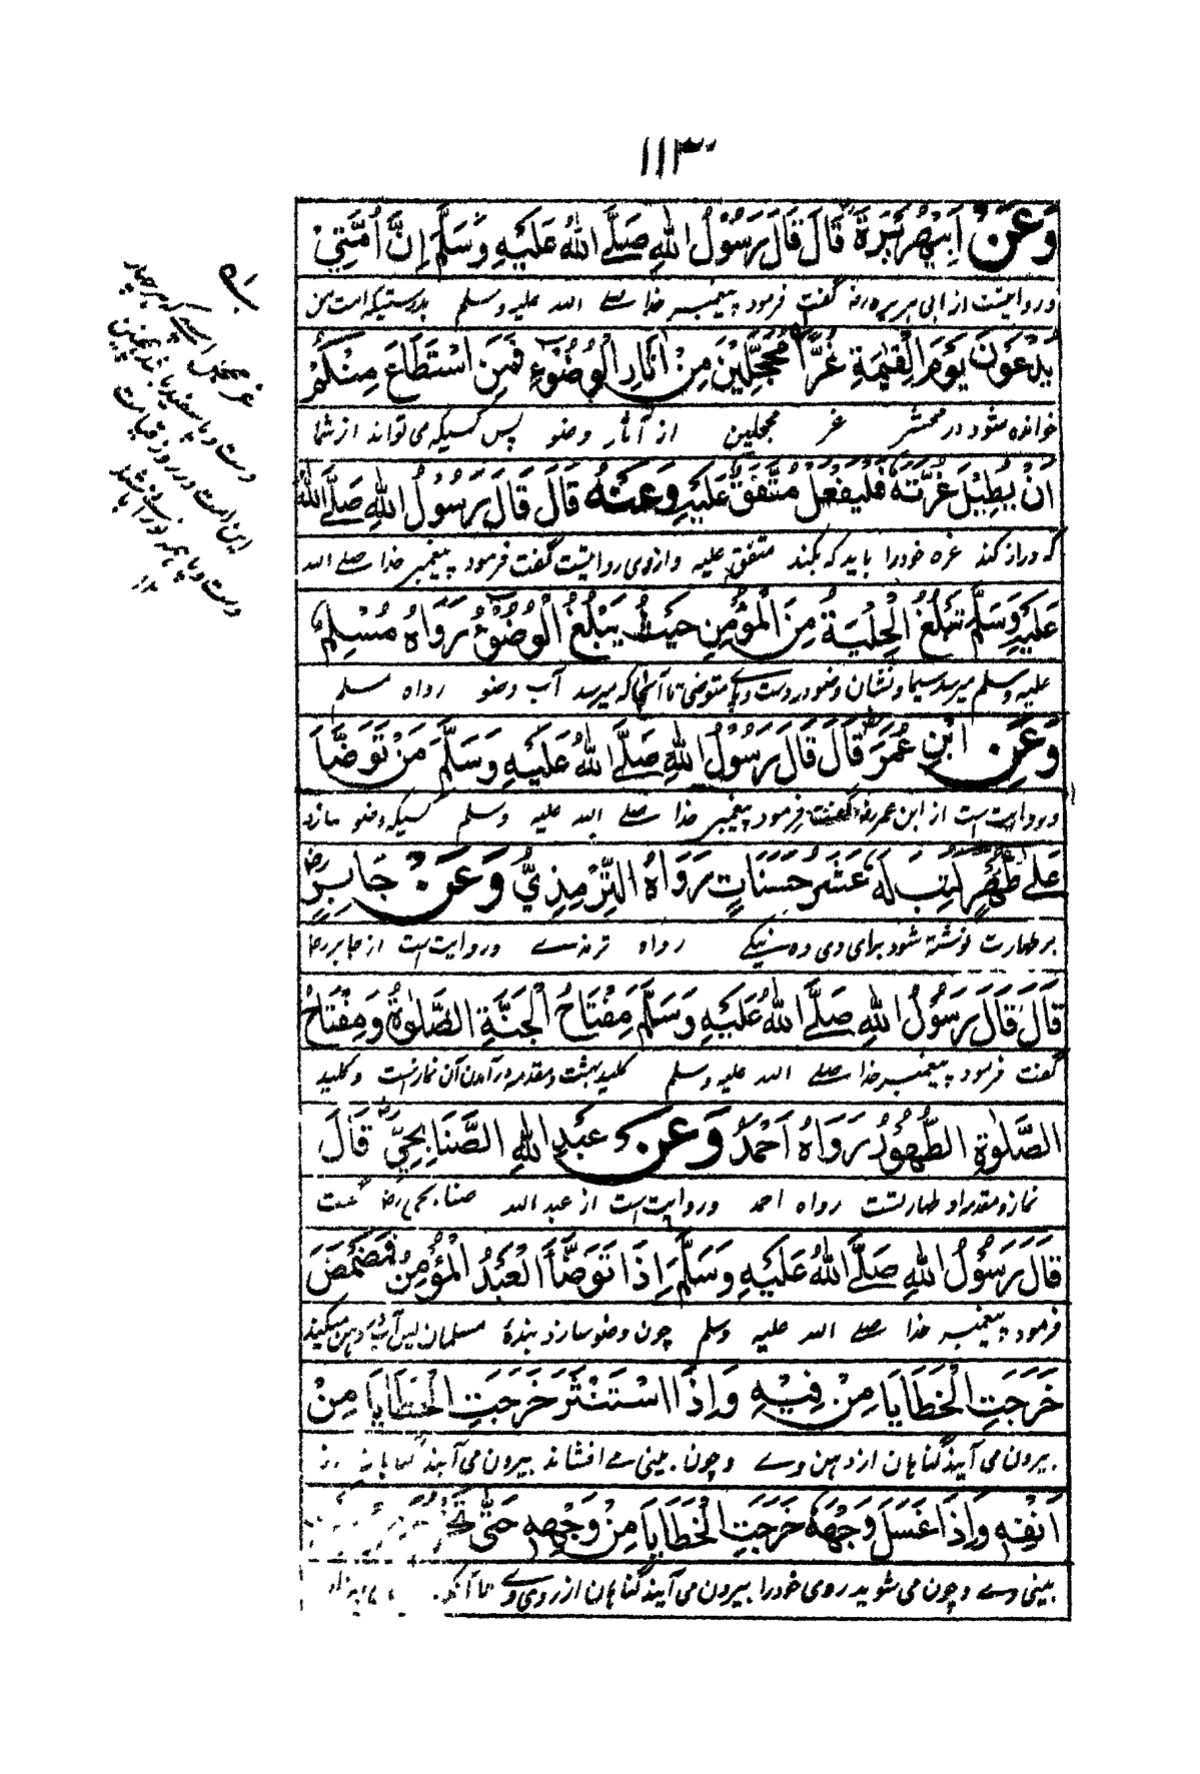 ۱۱۳
وَعَنْ اَبِيْ هُرَيْرَةَ قَالَ قَالَ رَسُوْلُ اللهِ صَلَّے اللهُ عَلَيْهِ وَسَلَّمَ اِنَّ اُمَّتِيْ
وروایتست از ابی هریره رضه گفت فرمود پیغمبر خدا صلے الله علیه وسلم بدرستیکه امت من
يُدْعَوْنَ يَوْمَ الْقِيٰمَةِ غُرًّا مُحَجَّلِيْنَ مِنْ اٰثَارِ الْوُضُوْءِ فَمَنِ اسْتَطَاعَ مِنْكُمْ
خوانده شود در محشر غر محجلین از آثار وضو پس کسیکه می تواند از شما
اَنْ يُطِيْلَ غُرَّتَهُ فَلْيَفْعَلْ مُتَّفَقٌ عَلَيْهِ وَعَنْهُ قَالَ قَالَ رَسُوْلُ اللهِ صَلَّے اللهُ
که دراز کند غره خود را باید که بکند متفق علیه و از وی روایتست گفت فرمود پیغمبر خدا صلے الله
عَلَيْهِ وَسَلَّمَ تَبْلُغُ الْحِلْيَةُ مِنَ الْمُؤْمِنِ حَيْثُ يَبْلُغُ الْوُضُوْءُ رَوَاهُ مُسْلِمٌ
علیه وسلم میرسد سیما و نشان وضو در دست و پاے متوضی تا آنجا که میرسد آب وضو رواه مسلم
وَعَنِ ابْنِ عُمَرَ قَالَ قَالَ رَسُوْلُ اللهِ صَلَّے اللهُ عَلَيْهِ وَسَلَّمَ مَنْ تَوَضَّأَ
وروایت ست از ابن عمر رضه گفت فرمود پیغمبر خدا صلے الله علیه وسلم کسیکه وضو سازد
عَلٰے طُهْرٍ كُتِبَ لَهُ عَشَرُ حَسَنَاتٍ رَوَاهُ التِّرْمِذِيُّ وَعَنْ جَابِرٍ رض
بر طهارت نوشته شود برای وی ده نیکے رواه ترمذے وروایت ست از جابر رضا
قَالَ قَالَ رَسُوْلُ اللهِ صَلَّے اللهُ عَلَيْهِ وَسَلَّمَ مِفْتَاحُ الْجَنَّةِ الصَّلٰوةُ وَمِفْتَاحُ
گفت فرمود پیغمبر خدا صلے الله علیه وسلم کلید بهشت و مقدمه درآمدن آن نمازست و کلید
الصَّلٰوةِ الطُّهُوْرُ رَوَاهُ اَحْمَدُ وَعَنْ عَبْدِ اللهِ الصَّنَابِحِيِّ قَالَ
نماز و مقدمه او طهارتست رواه احمد وروایت ست از عبد الله صنابحی رضا گفت
قَالَ رَسُوْلُ اللهِ صَلَّے اللهُ عَلَيْهِ وَسَلَّمَ اِذَا تَوَضَّأَ الْعَبْدُ الْمُؤْمِنُ فَمَضْمَضَ
فرمود پیغمبر خدا صلے الله علیه وسلم چون وضو سازد بندۀ مسلمان پس آب در دهن میکند
خَرَجَتِ الْخَطَايَا مِنْ فِيْهِ وَاِذَا اسْتَنْثَرَ خَرَجَتِ الْخَطَايَا مِنْ
بیرون می آیند گناهان از دهن وے و چون بینی مے افشاند بیرون می آیند گناهان از
اَنْفِهِ وَاِذَا غَسَلَ وَجْهَهُ خَرَجَتِ الْخَطَايَا مِنْ وَجْهِهِ حَتّٰى
بینی وے و چون می شوید روی خود را بیرون می آیند گناهان از روی وے تا آنکه
غر محجل اسپے که هر چهار
دست و پا سفید باشد همچنین
این امت در روز قیامت